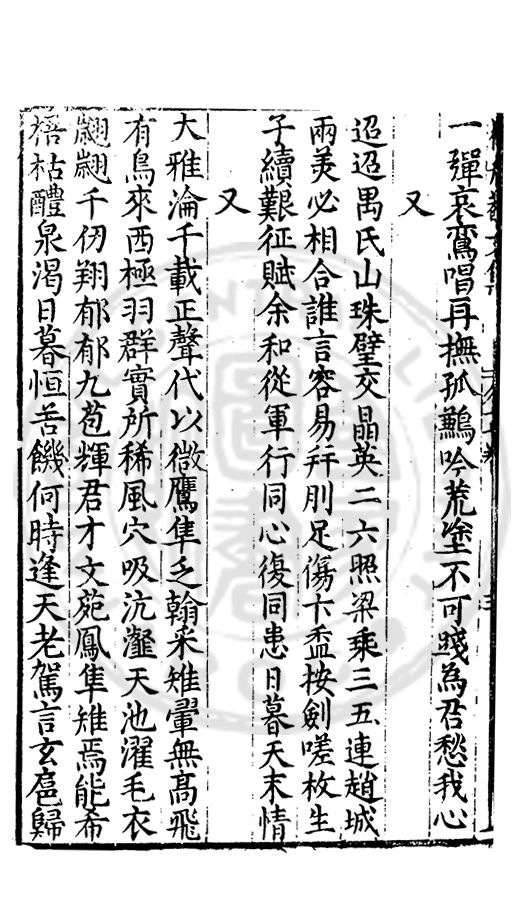 一彈哀鸞唱再撫孤鷞吟荒塗不可踐為君愁我心
又
迢迢禺氏山珠璧交晶英二六照梁乘三五連趙城
兩美必相合誰言容易幷刖足傷卞盃按劍嗟枚生
子續艱征賦余和從軍行同心復同患日暮天末情
又
大雅淪千載正聲代以微鷹隼乏翰采雉翬無高飛
有鳥來西極羽群實所稀風穴吸沆瀣天池濯毛衣
翩翩千仞翔郁郁九苞輝君才文苑鳳隼雉焉能希
梧枯醴泉渴日暮恒苦饑何時逢天老駕言玄扈歸